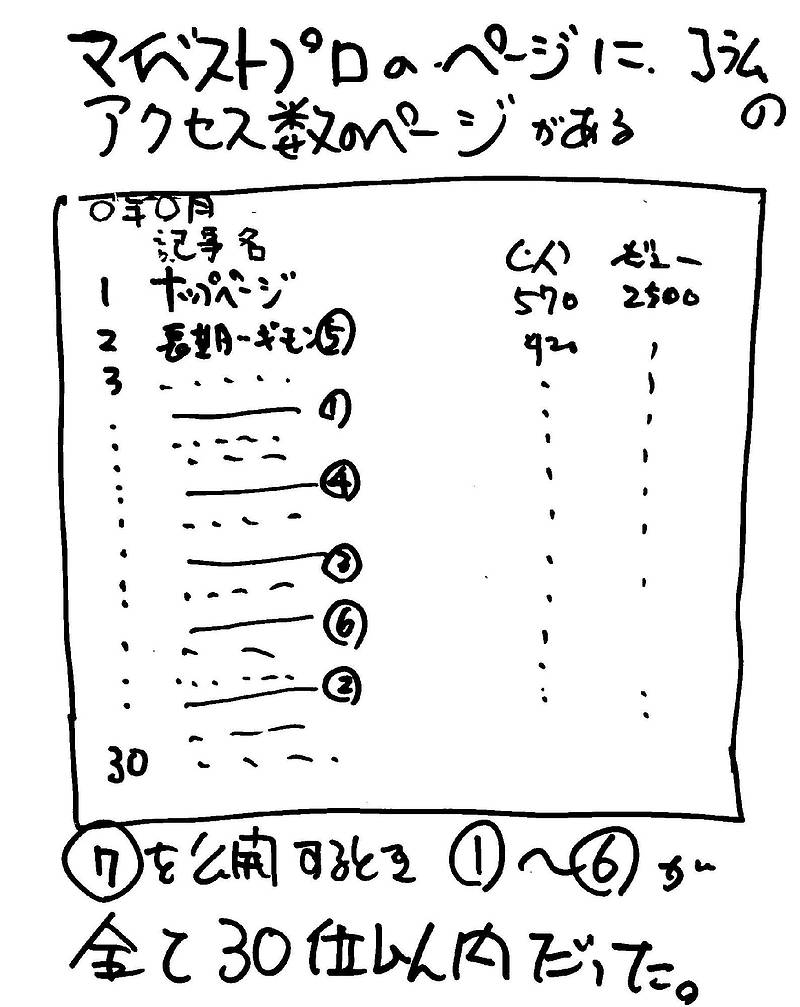 マイベストプロのページに、コラムの
アクセス数のページがある
〇年〇月
記事名 (人) ビュー
1 トップページ 570 2500
2 長期〜ギモン⑤ 420
3
①
④
③
⑥
②
30
⑦を公開するとき ①〜⑥が
全て30位以内だった。